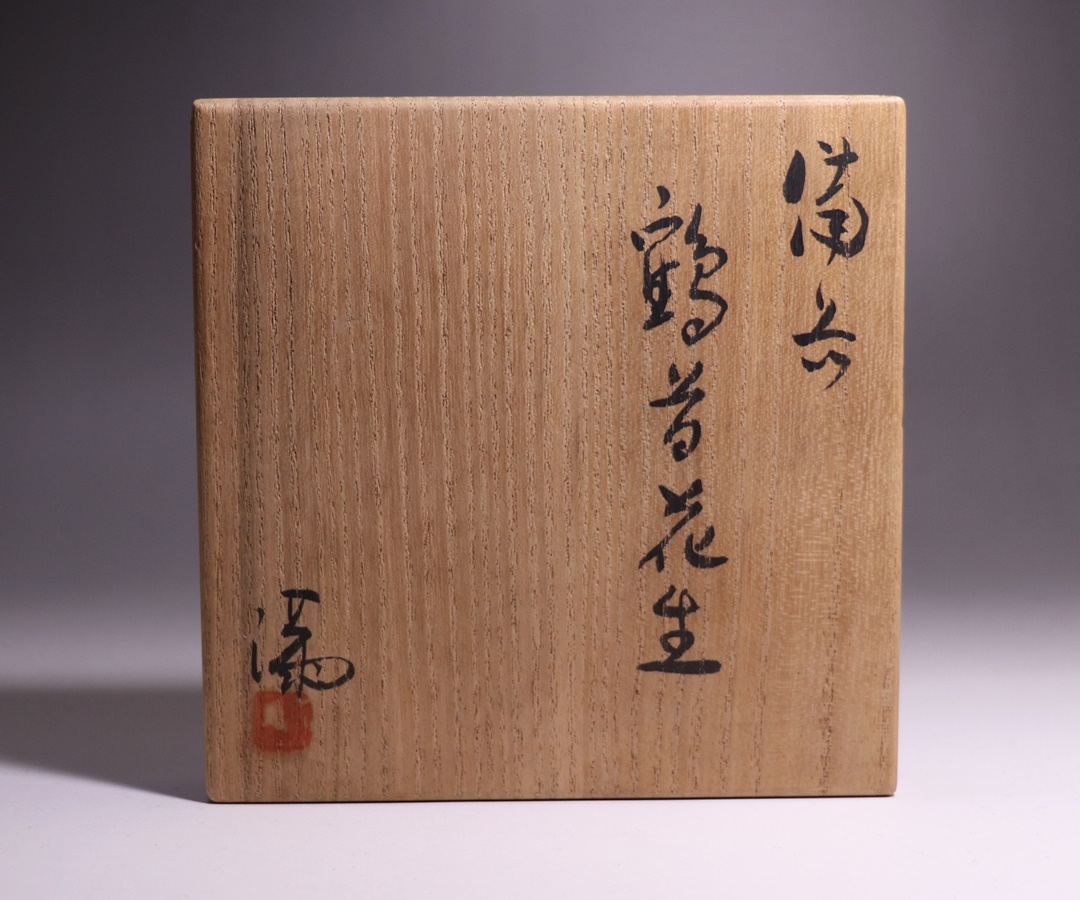 備前
鶴首花生
満